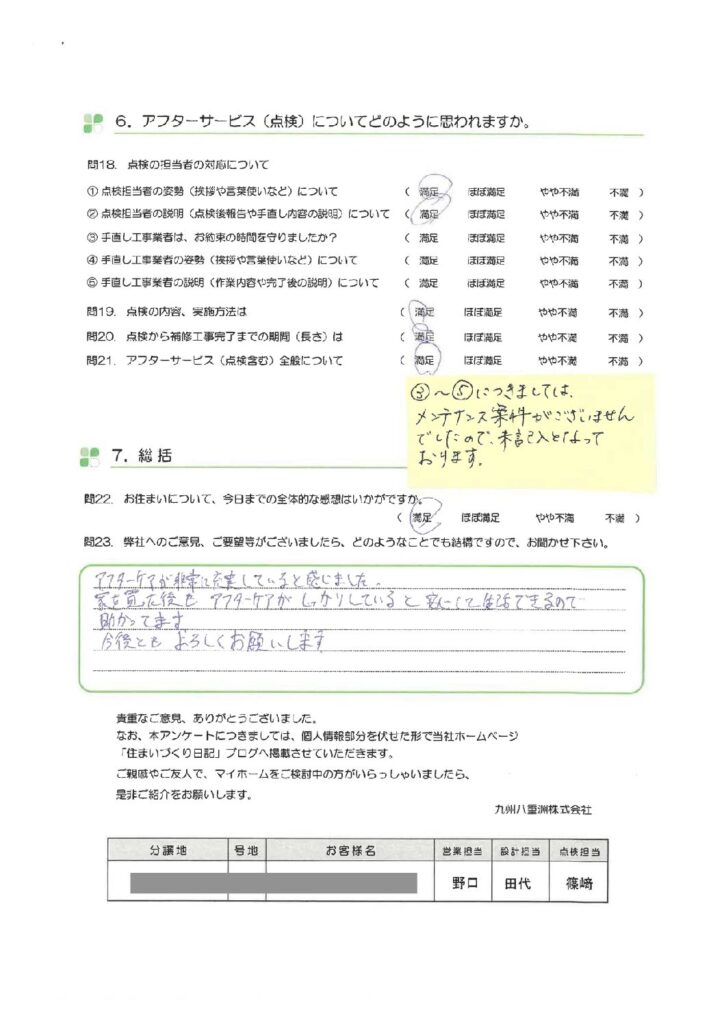 6．アフターサービス（点検）についてどのように思われますか。
問18．点検の担当者の対応について
①点検担当者の姿勢（挨拶や言葉使いなど）について （ 満足 ほぼ満足 やや不満 不満 ）
②点検担当者の説明（点検後報告や手直し内容の説明）について （ 満足 ほぼ満足 やや不満 不満 ）
③手直し工事業者は、お約束の時間を守りましたか？ （ 満足 ほぼ満足 やや不満 不満 ）
④手直し工事業者の姿勢（挨拶や言葉使いなど）について （ 満足 ほぼ満足 やや不満 不満 ）
⑤手直し工事業者の説明（作業内容や完了後の説明）について （ 満足 ほぼ満足 やや不満 不満 ）
問19．点検の内容、実施方法は （ 満足 ほぼ満足 やや不満 不満 ）
問20．点検から補修工事完了までの期間（長さ）は （ 満足 ほぼ満足 やや不満 不満 ）
問21．アフターサービス（点検含む）全般について （ 満足 ほぼ満足 やや不満 不満 ）
③～⑤につきましては、
メンテナンス案件がございません
でしたので、未記入となって
おります。
7．総括
問22．お住まいについて、今日までの全体的な感想はいかがですか。
（ 満足 ほぼ満足 やや不満 不満 ）
問23．弊社へのご意見、ご要望等がございましたら、どのようなことでも結構ですので、お聞かせ下さい。
アフターケアが非常に充実していると感じました。
家を買った後も アフターケアが しっかりしていると 安心して生活できるので
助かってます
今後とも よろしくお願いします
貴重なご意見、ありがとうございました。
なお、本アンケートにつきましては、個人情報部分を伏せた形で当社ホームページ
「住まいづくり日記」ブログへ掲載させていただきます。
ご親戚やご友人で、マイホームをご検討中の方がいらっしゃいましたら、
是非ご紹介をお願いします。
九州八重洲株式会社
分譲地 号地 お客様名 営業担当 設計担当 点検担当
野口 田代 篠﨑